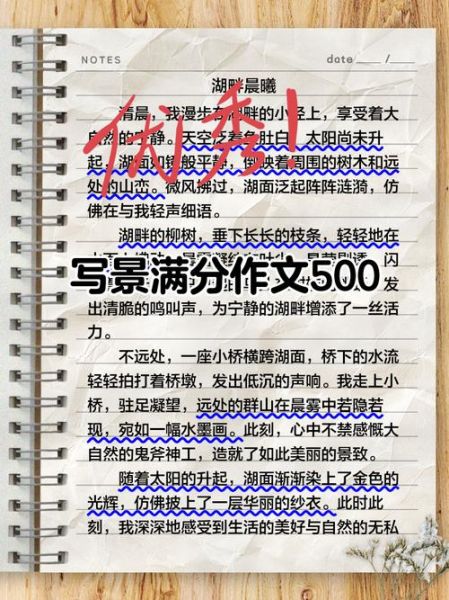 NOTES
date ___ /___
湖畔晨曦
清晨，我漫步在湖畔的小径上，享受着大
自然的宁静。天空泛着鱼肚白，太阳尚未升
起，湖面如镜般平静，倒映着周围的树木和远
处的山峦。微风拂过，湖面泛起阵阵涟漪，仿
佛在与我轻声细语。
优秀！
湖畔的柳树，垂下长长的枝条，轻轻地在
写景满分作文500
闪
发
出清脆的鸣叫声，为宁静的湖畔增添了一丝活
力。
不远处，一座小桥横跨湖面，桥下的水流
轻轻拍打着桥墩，发出低沉的声响。我走上小
桥，驻足凝望，远处的群山在晨雾中若隐若
现，宛如一幅水墨画。此刻，心中不禁感慨大
自然的鬼斧神工，造就了如此美丽的景致。
随着太阳的升起，湖面渐渐染上了金色的
光辉，仿佛披上了一层华丽的纱衣。此时此
刻，我深深地感受到生活的美好与自然的无私